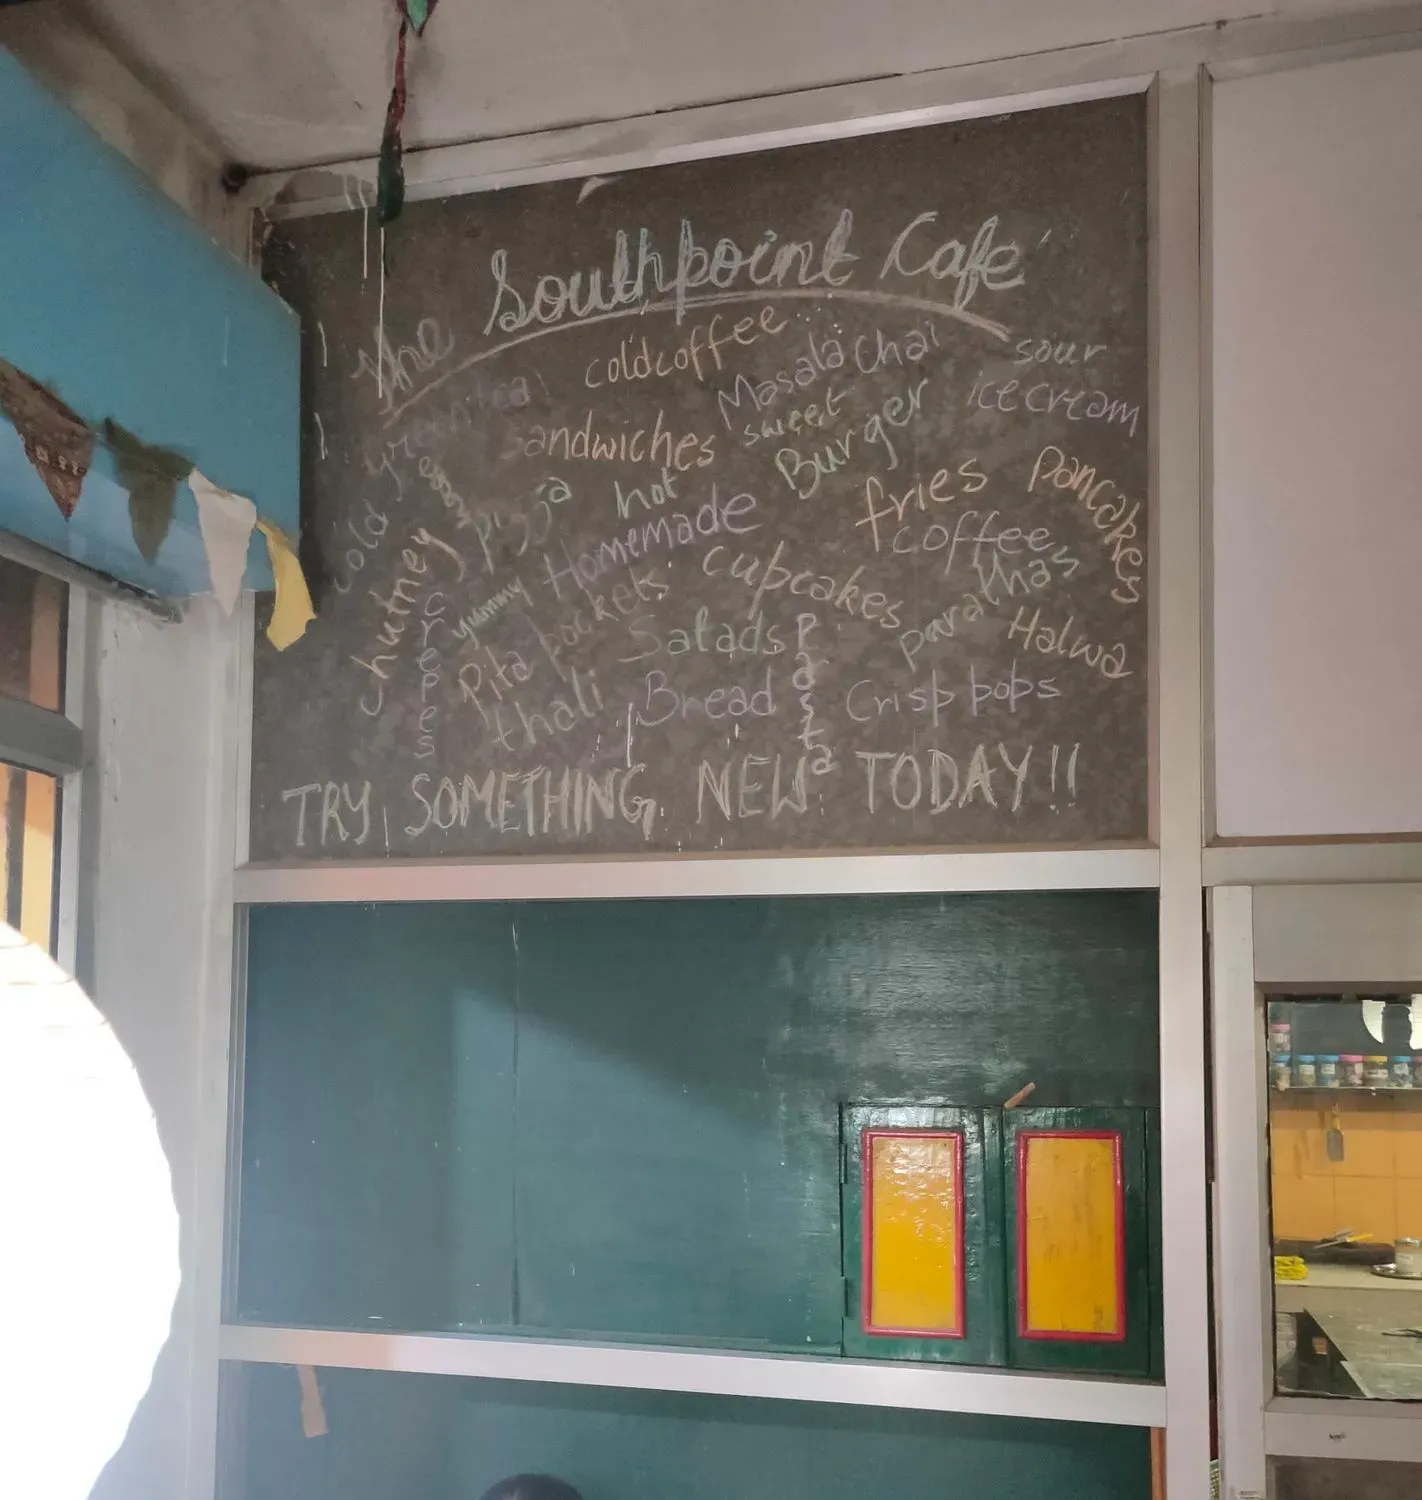 The Southpoint Café
coldcoffee
Masala chai
sour
icecream
green tea
sandwiches
sweet
Burger
fries
Pancakes
egg
pizza
hot
Homemade
coffee
cold
chutney
yummy
cupcakes
parathas
crepes
Pita pockets
Salads
Pasta
Halwa
thali
Bread
Crisp pops
TRY SOMETHING NEW TODAY!!